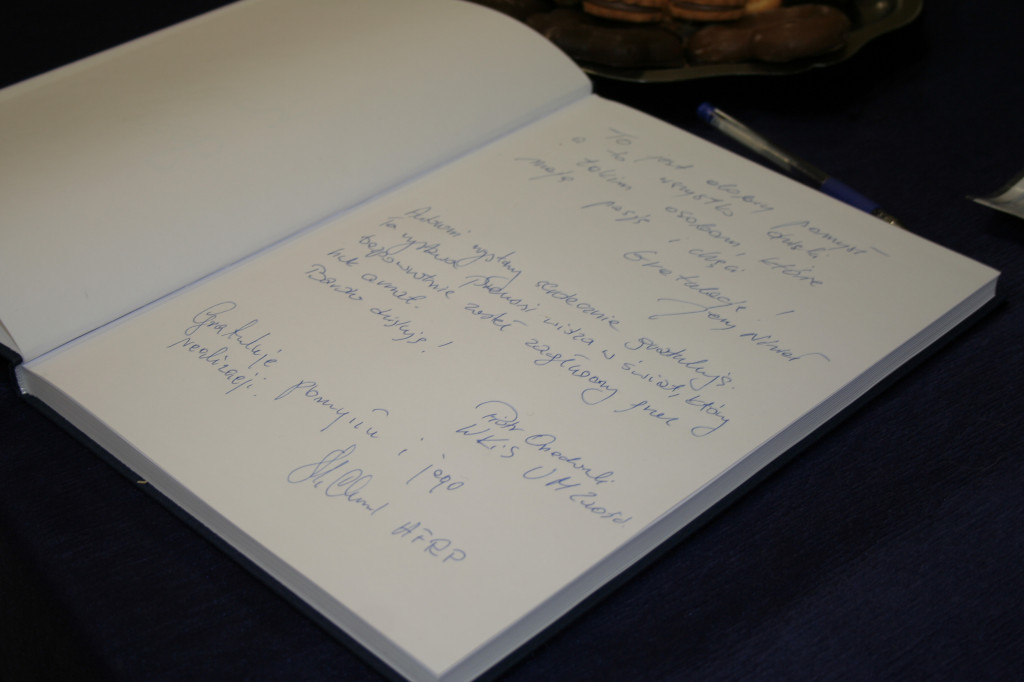 To jest dobry pomysł
a to wszystko dzięki
takim osobom, które
mają pasję i chęci
Gratulacje!
Jerzy
Autorowi wystawy serdecznie gratuluję.
Ta wystawa przenosi widza w świat, który
bezpowrotnie został zagłuszony przez
huk armat.
Bardzo dziękuję!
Piotr
WKiS UM
Gratuluję pomysłu i jego
realizacji.
AFRP